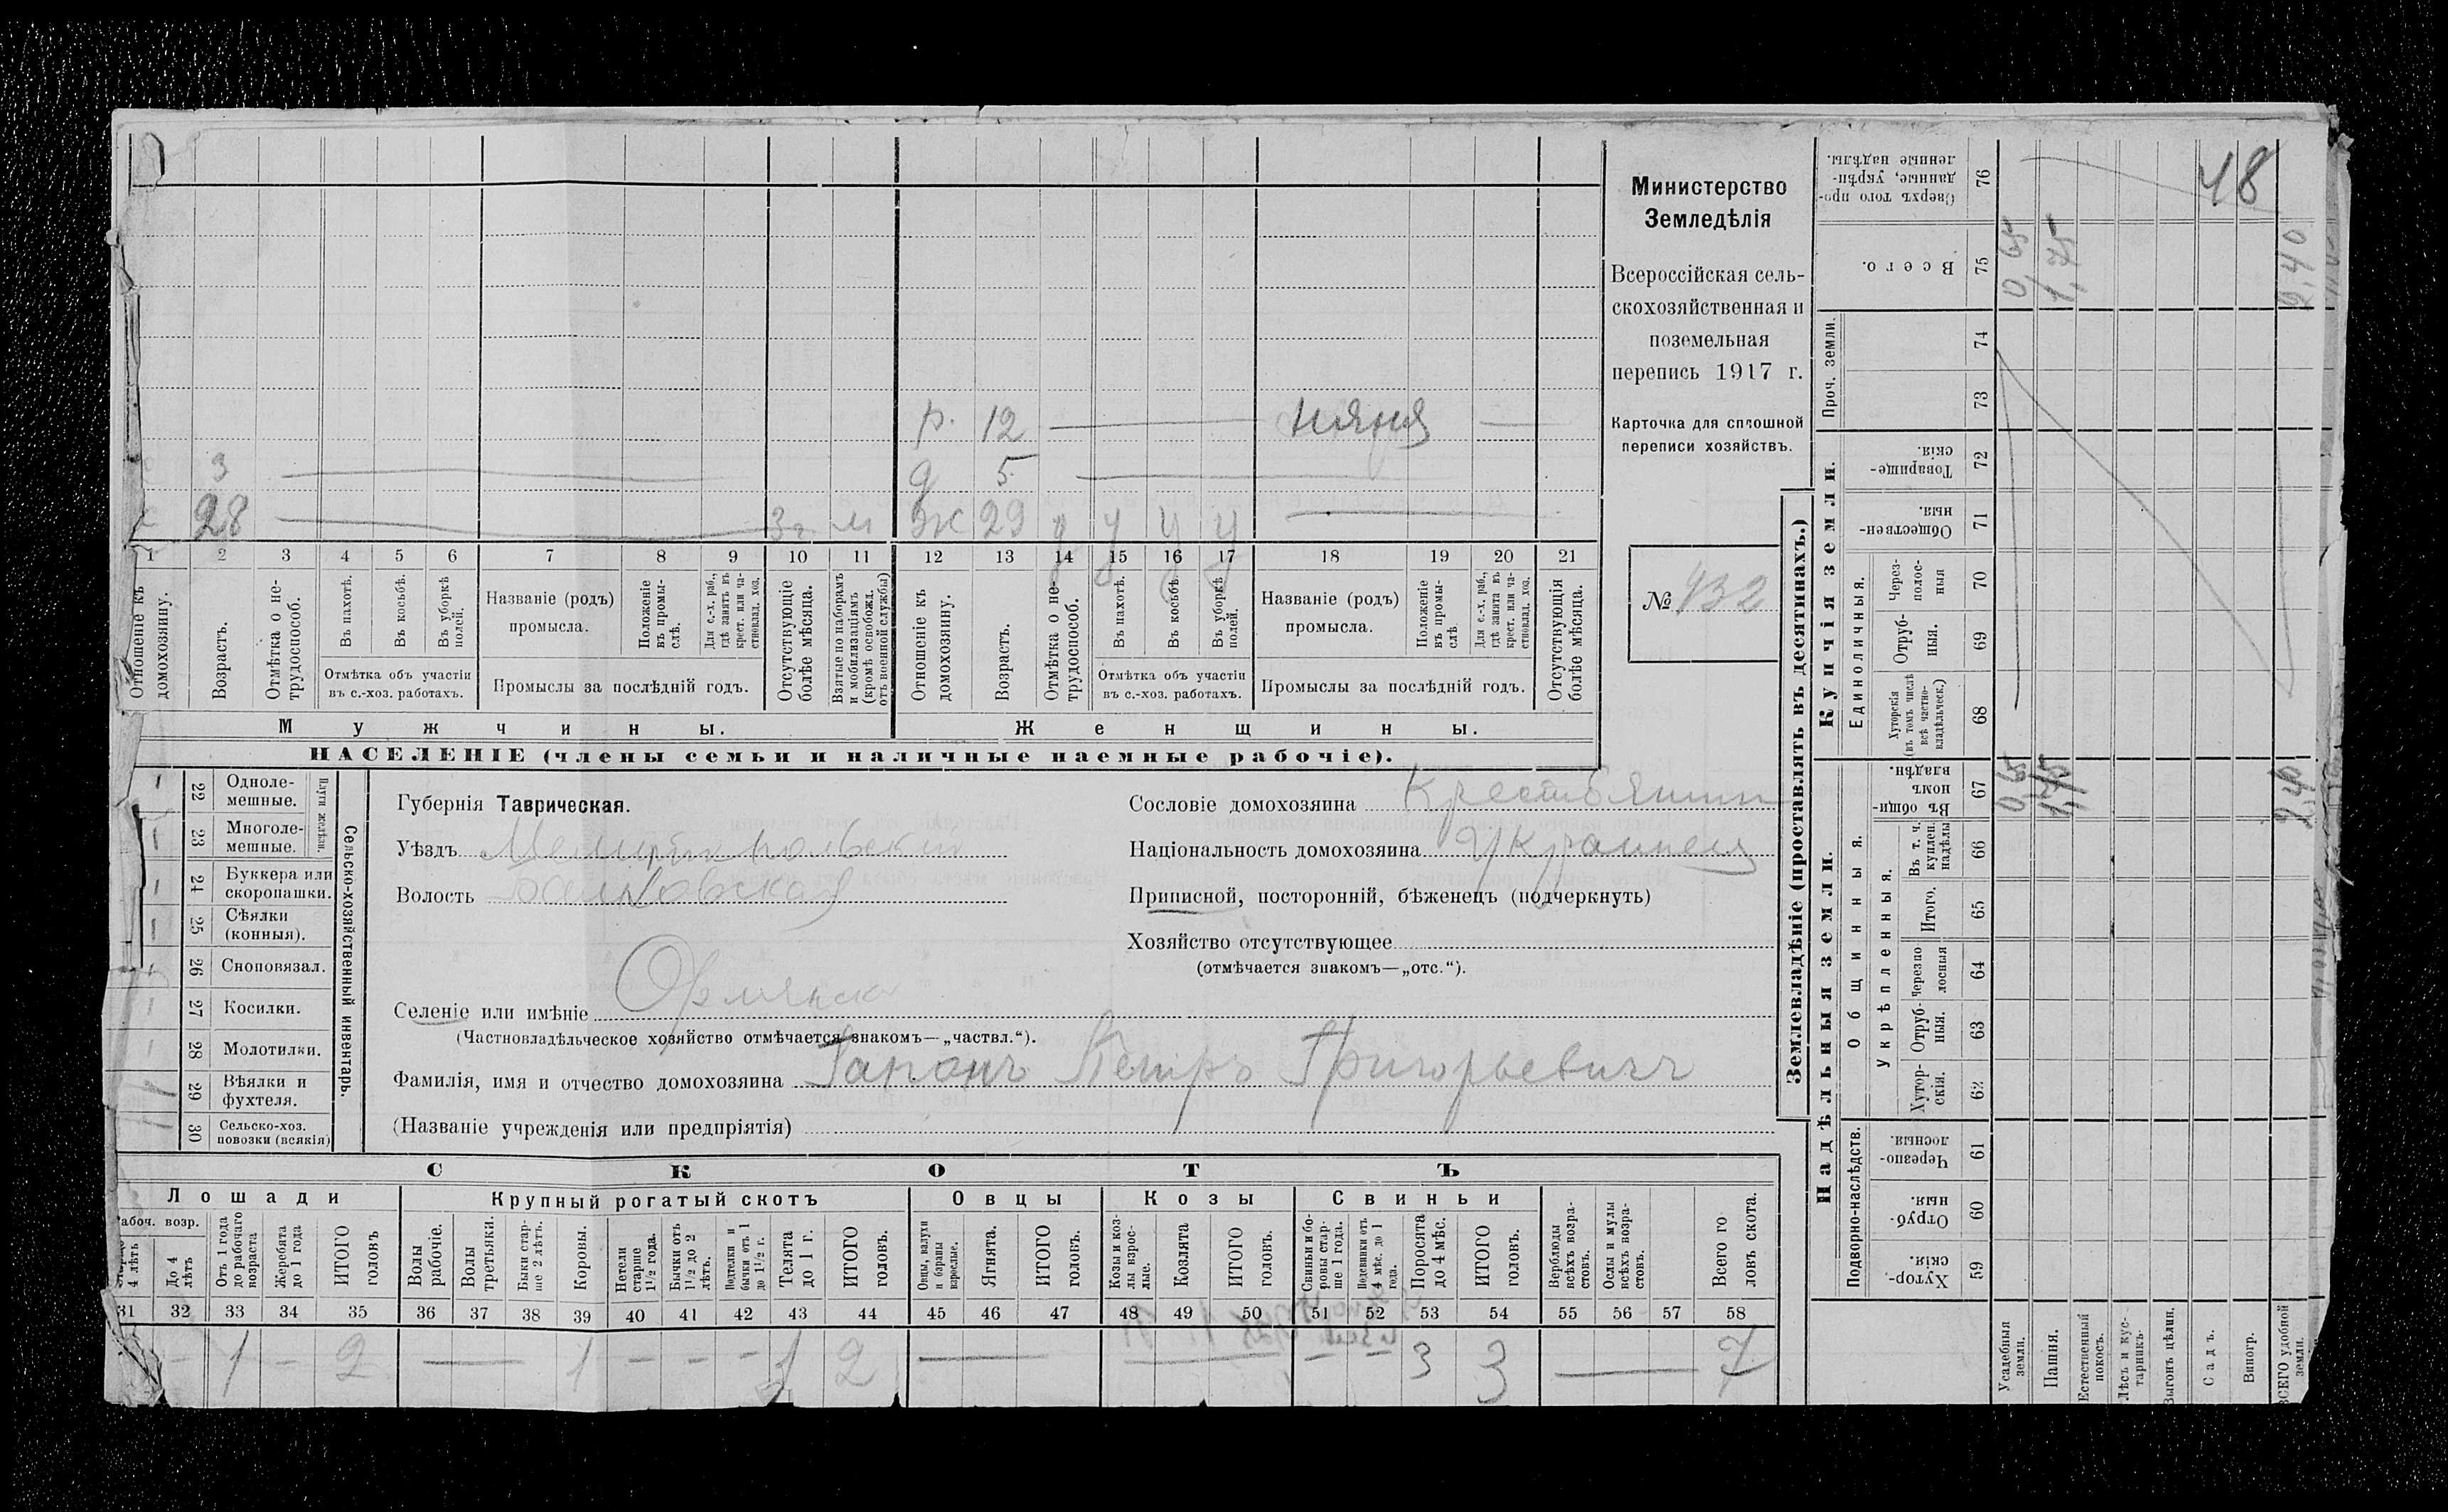 Министерство
Земледѣлія
Всероссійская сель-
скохозяйственная и
поземельная
перепись 1917 г.
Карточка для сплошной
переписи хозяйствъ.
№ 432
р. 12 — няня —
3 — д 5 —
28 — 3 г. м ж 29 у у у —
1 2 3 4 5 6 7 8 9 10 11 12 13 14 15 16 17 18 19 20 21
Отношеніе къ домохозяину.
Возрастъ.
Отмѣтка о не-
трудоспособ.
Въ пахотѣ.
Въ косьбѣ.
Въ уборкѣ полей.
Отмѣтка объ участіи
въ с.-хоз. работахъ.
Названіе (родъ)
промысла.
Положеніе въ промы-
слѣ.
Для с.-х. раб., гдѣ занятъ въ крест. или ча-
стновлад. хоз.
Промыслы за послѣдній годъ.
Отсутствующіе болѣе мѣсяца.
Взятые по наборамъ и мобилизаціямъ (кромѣ освобожд. отъ военной службы)
Отношеніе къ домохозяину.
Возрастъ.
Отмѣтка о не-
трудоспособ.
Въ пахотѣ.
Въ косьбѣ.
Въ уборкѣ полей.
Отмѣтка объ участіи
въ с.-хоз. работахъ.
Названіе (родъ)
промысла.
Положеніе въ промы-
слѣ.
Для с.-х. раб., гдѣ занята въ крест. или ча-
стновлад. хоз.
Промыслы за послѣдній годъ.
Отсутствующія болѣе мѣсяца.
Мужчины.
Женщины.
НАСЕЛЕНІЕ (члены семьи и наличные наемные рабочіе).
Сельско-хозяйственный инвентарь.
Плуги желѣзн.
22 Одноле-
мешные.
23 Многоле-
мешные.
24 Буккера или
скоропашки.
25 Сѣялки
(конныя).
26 Сноповязал.
27 Косилки.
28 Молотилки.
29 Вѣялки и
фухтеля.
30 Сельско-хоз.
повозки (всякія)
Губернія Таврическая.
Уѣздъ Мелитопольский
Волость
Селеніе или имѣніе
(Частновладѣльческое хозяйство отмѣчается знакомъ—„частвл.“).
Фамилія, имя и отчество домохозяина Гапонъ Петръ Григорьевичъ
(Названіе учрежденія или предпріятія)
Сословіе домохозяина Крестьянин
Національность домохозяина Украинец
Приписной, посторонній, бѣженецъ (подчеркнуть)
Хозяйство отсутствующее
(отмѣчается знакомъ—„отс.“).
СКОТЪ
Лошади
Крупный рогатый скотъ
Овцы
Козы
Свиньи
Рабоч. возр.
4 лѣтъ
До 4 лѣтъ
Отъ 1 года до рабочаго возраста
Жеребята до 1 года
ИТОГО головъ
Волы рабочіе.
Волы третьяки.
Быки стар-
ше 2 лѣтъ.
Коровы.
Нетели старше 1½ года.
Бычки отъ 1½ до 2 лѣтъ.
Подтелки и бычки отъ 1 до 1½ г.
Телята до 1 г.
ИТОГО головъ.
Овцы, валухи и бараны взрослые.
Ягнята.
ИТОГО головъ.
Козы и коз-
лы взрос-
лые.
Козлята
ИТОГО головъ.
Свиньи и бо-
ровы стар-
ше 1 года.
Подсвинки отъ 4 мѣс. до 1 года.
Поросята до 4 мѣс.
ИТОГО головъ.
Верблюды всѣхъ возра-
стовъ.
Ослы и мулы всѣхъ возра-
стовъ.
Всего го
ловъ скота.
31 32 33 34 35 36 37 38 39 40 41 42 43 44 45 46 47 48 49 50 51 52 53 54 55 56 57 58
– 1 – 2 — 1 – – – 1 2 — — – – 3 3 — 7
Землевладѣніе (проставлять въ десятинахъ.)
Надѣльныя земли.
Купчія земли.
Проч. земли.
Подворно-наслѣдств.
Общинныя.
Укрѣпленныя.
Единоличныя.
Сверхъ того про-
данные, укрѣп-
ленные надѣлы. 76
Всего. 75
74
73
Товарище-
скія. 72
Обществен-
ныя. 71
Через-
полос-
ныя 70
Отруб-
ныя. 69
Хуторскія (въ томъ числѣ всѣ частно-
владѣльческ.) 68
Въ общин-
номъ владѣн. 67
Въ т. ч. куплен. надѣлы 66
Итого. 65
Черезпо
лосныя 64
Отруб-
ныя. 63
Хутор-
скія. 62
Черезпо-
лосныя. 61
Отруб-
ныя. 60
Хутор-
скія. 59
48
0,65
1,75
2,40
0,65
1,75
2,40
Усадебныя земли.
Пашня.
Естественный покосъ.
Лѣсъ и кус-
тарникъ.
Выгонъ цѣлин.
Садъ.
Виногр.
ВСЕГО удобной земли.